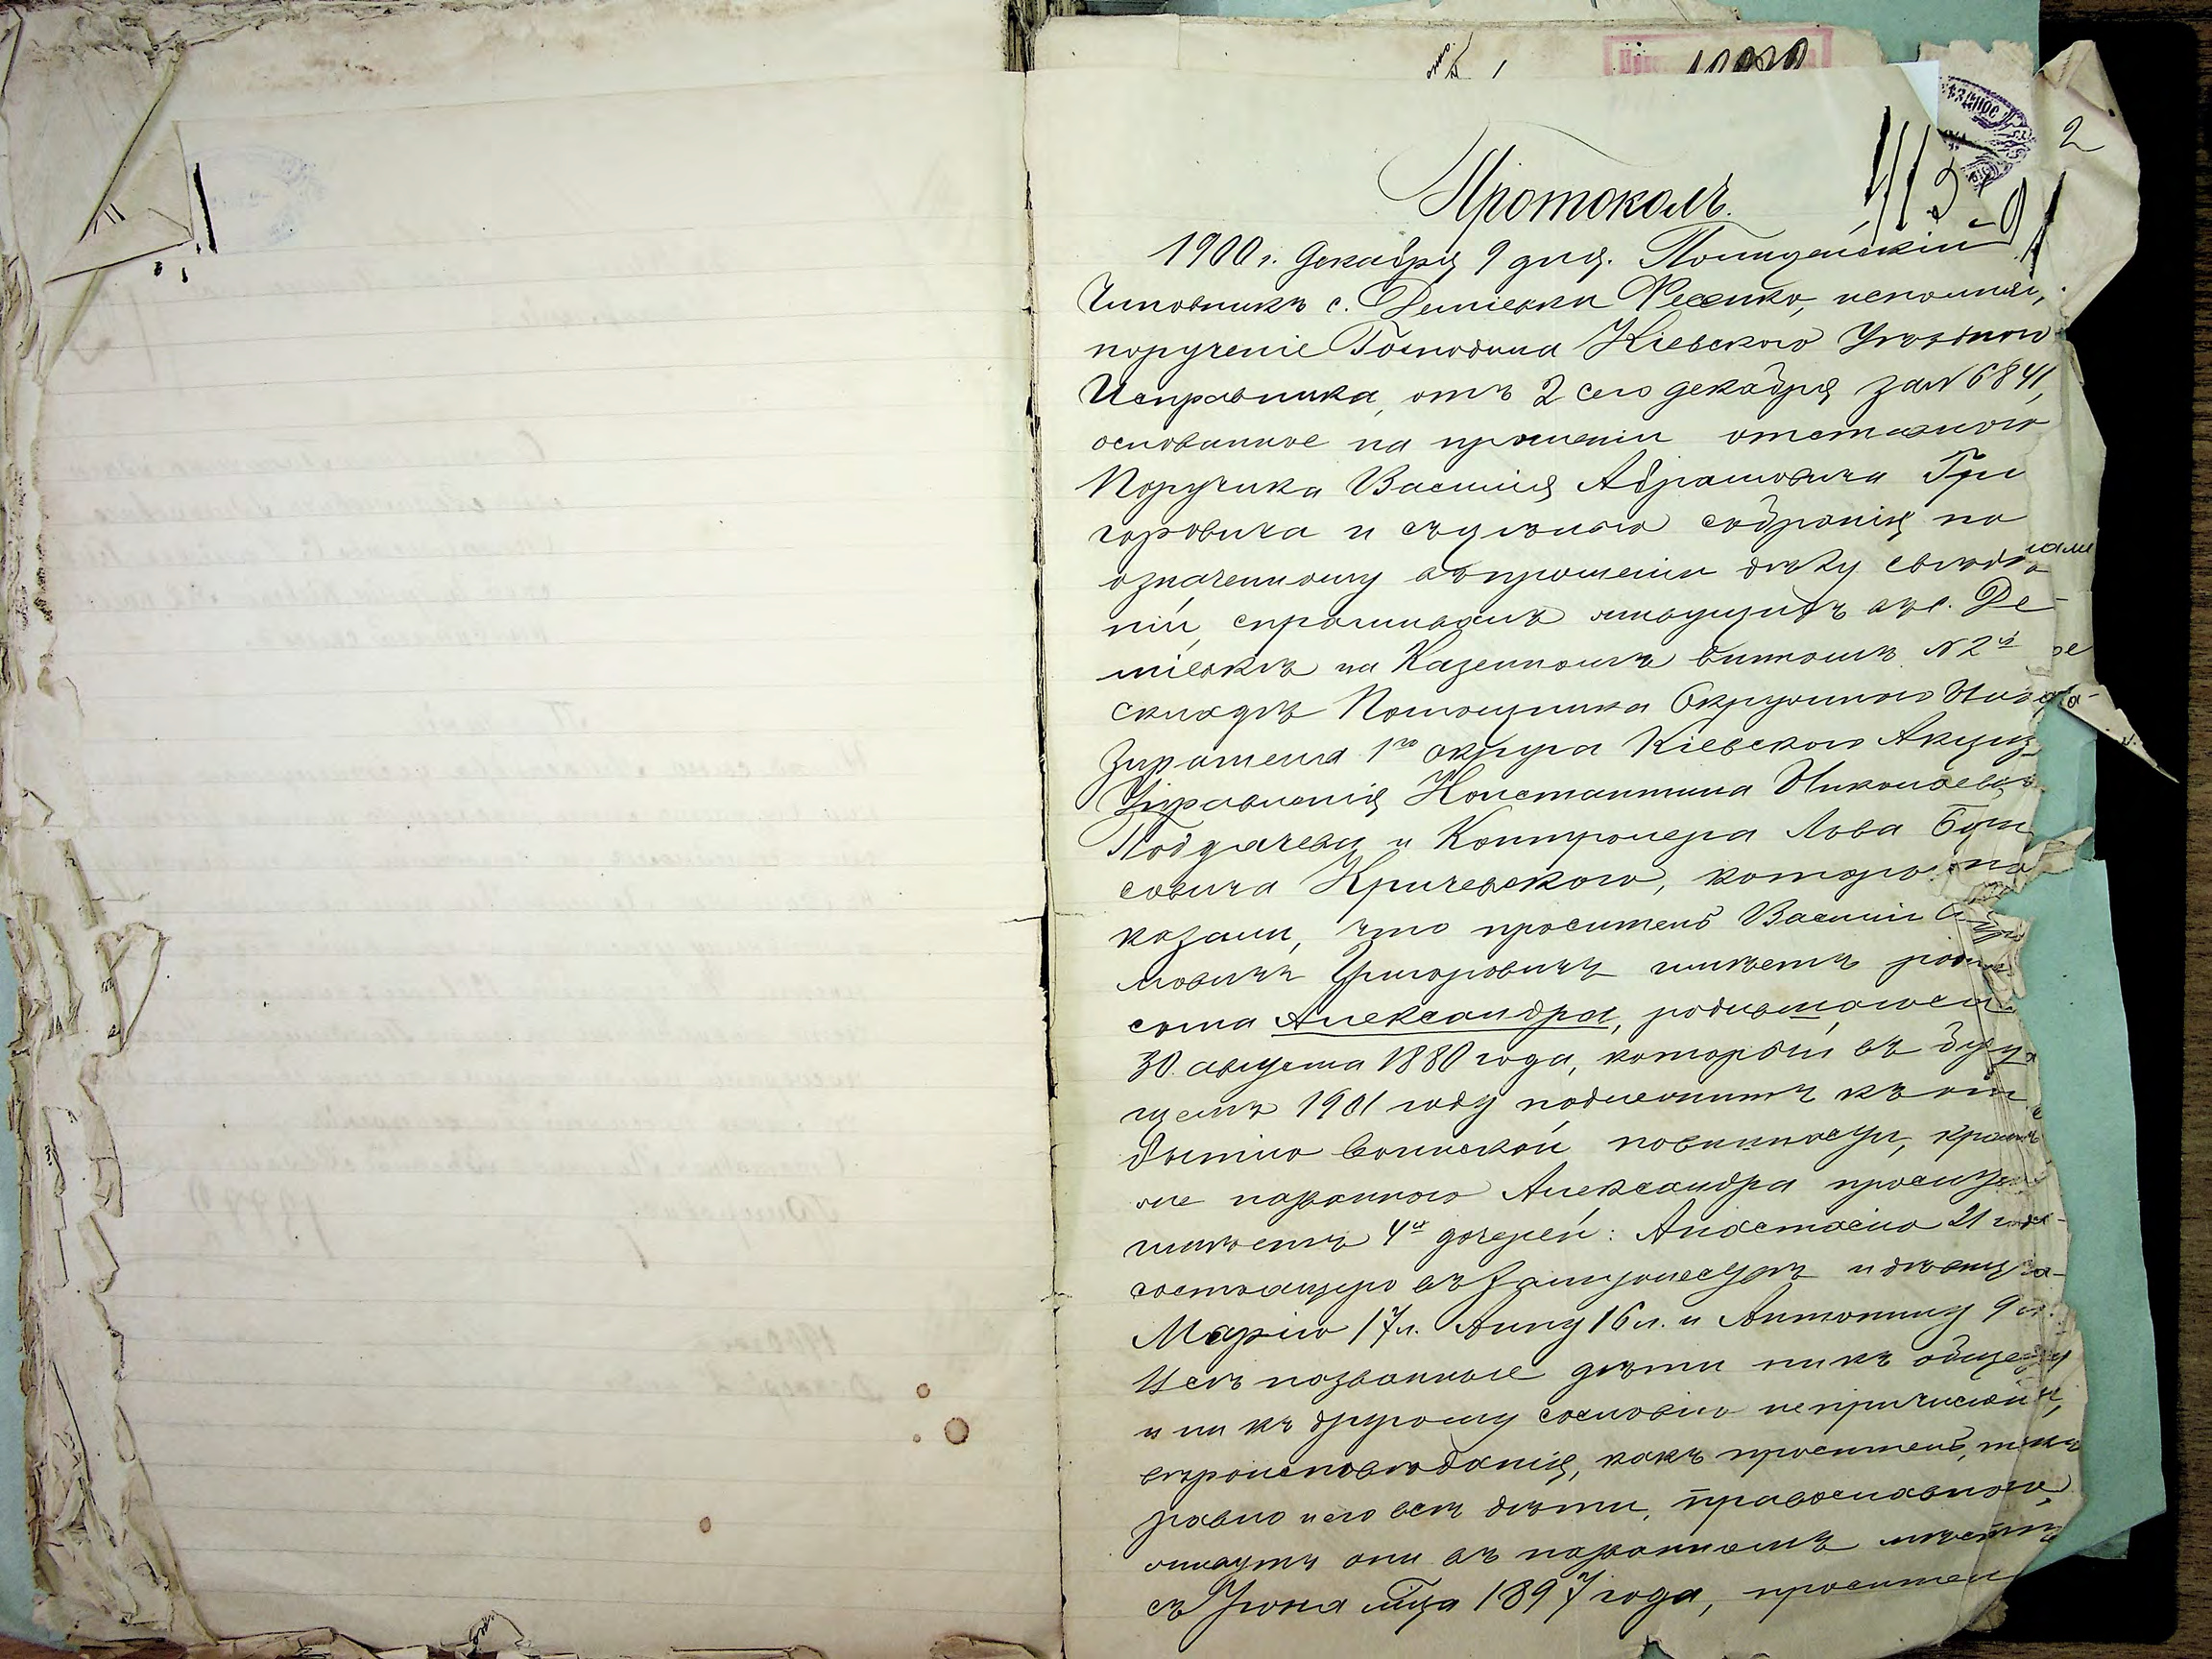 1
2
Протоколъ.
1900 г. Декабря 9 дня. Полицейскій
Чиновникъ с. Деміевки исполняя,
порученіе Господина Кіевскаго Уѣзднаго
Исправника, отъ 2 сего декабря за № 6841,
основанное на прошеніи отставного
Поручика Василія Абрамовича Гри
горовича и сдѣланаго собранія по
означенному въ прошеніи дѣлу свѣдѣ
ній, спрашивалъ живущихъ въ с. Де
міевкѣ на Казенномъ винномъ № 2й
складѣ Помощника Окружнаго Над
зирателя 1го округа Кіевскаго Акциз
Управленія Константина Николаева
и Контролера Льва Бори
совича Кричевскаго, которые по
казали, что проситель Василій
мовичъ Григоровичъ имѣетъ родн
сына Александра, родившагося
30 августа 1880 года, который въ буду
щемъ 1901 году подлежитъ къ от
бытію воинской повинности, кромѣ
же названного Александра проситель
имѣетъ 4хъ дочерей: Анастасію 21 года
состоящую въ замужествѣ и дѣвицъ
Марію 17 л. Анну 16 л. и Антонину 9 л.
Всѣ названные дѣти ни къ общему
и ни къ другому сословію непричислены,
вѣроисповѣданія, какъ проситель, такъ
равно и его всѣ дѣти, православнаго,
живутъ они въ названномъ мѣстѣ
съ Іюня мца 1897 года, проситель